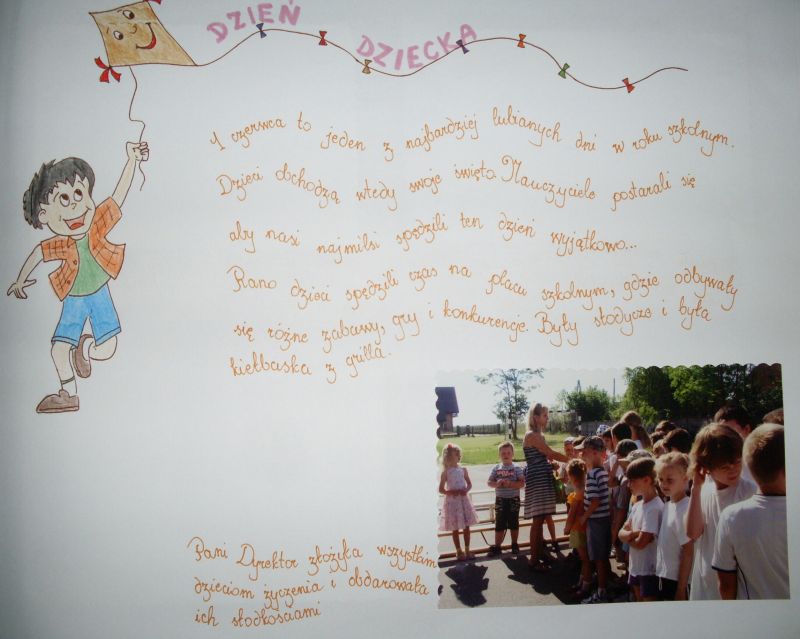 DZIEŃ
DZIECKA
1 czerwca to jeden z najbardziej lubianych dni w roku szkolnym.
Dzieci obchodzą wtedy swoje święto. Nauczyciele postarali się
aby nasi najmilsi spędzili ten dzień wyjątkowo...
Rano dzieci spędzili czas na placu szkolnym, gdzie odbywały
się różne zabawy, gry i konkurencje. Były słodycze i była
kiełbaska z grilla.
Pani Dyrektor złożyła wszystkim
dzieciom życzenia i obdarowała
ich słodkościami